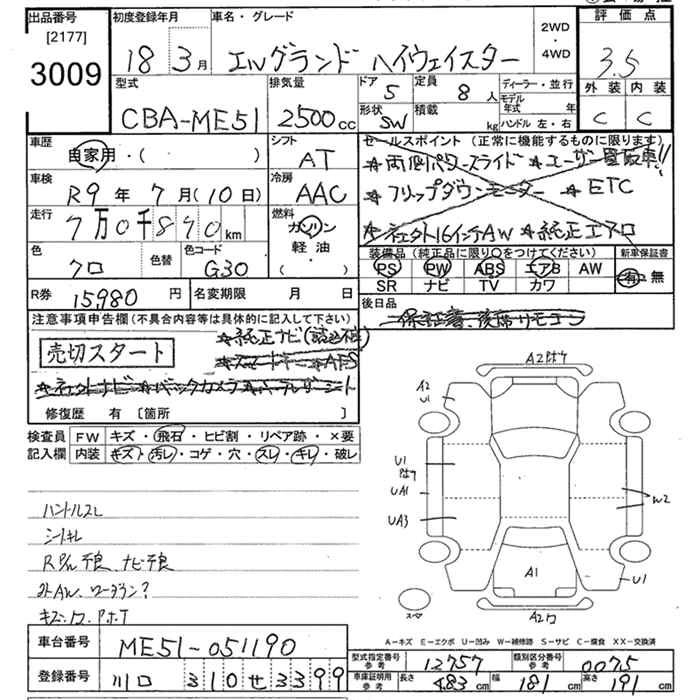 出品番号 [2177] 3009
初度登録年月 18年 3月
車名・グレード エルグランド ハイウェイスター
2WD・4WD
評価点 3.5
外装 C 内装 C
型式 CBA-ME51
排気量 2500cc
ドア 5 形状 SW
定員 8人 積載 kg
ディーラー・並行
モデル年式 年
ハンドル 左・右
車歴 自家用・( )
シフト AT
車検 R9年 7月(10日)
冷房 AAC
走行 7万0千890km
燃料 ガソリン 軽油・( )
色 クロ 色替 色コード G30
R券 15,980円 名変期限 月 日
セールスポイント(正常に機能するものに限ります)
★両側パワースライド ★ユーザー買取車!!
★フリップダウンモニター ★ETC
16インチAW ★純正エアロ
装備品(純正品に限り○をつけてください) 新車保証書
PS PW ABS エアB AW 有・無
SR ナビ TV カワ
後日品
保証書、後席リモコン
注意事項申告欄(不具合内容等は具体的に記入して下さい)
★純正ナビ
売切スタート
★スマートキー ★AFS
★バックカメラ
修復歴 有 [箇所 ]
検査員記入欄 FW キズ・飛石・ヒビ割・リペア跡・×要
内装 キズ・汚レ・コゲ・穴・スレ・キレ・破レ
ハンドルスレ
シートキレ
ナビ不良
A2
A2
U1
U1
UA1
UA3
W2
A1
U1
スペア
A2ワ
A−キズ E−エクボ U−凹み W−補修跡 S−サビ C−腐食 XX−交換済
車台番号 ME51-051190
登録番号 川口 310 せ 3399
型式指定番号 参考 12757 類別区分番号 参考 0075
車庫証明用 参考 長さ 483cm 幅 181cm 高さ 191cm